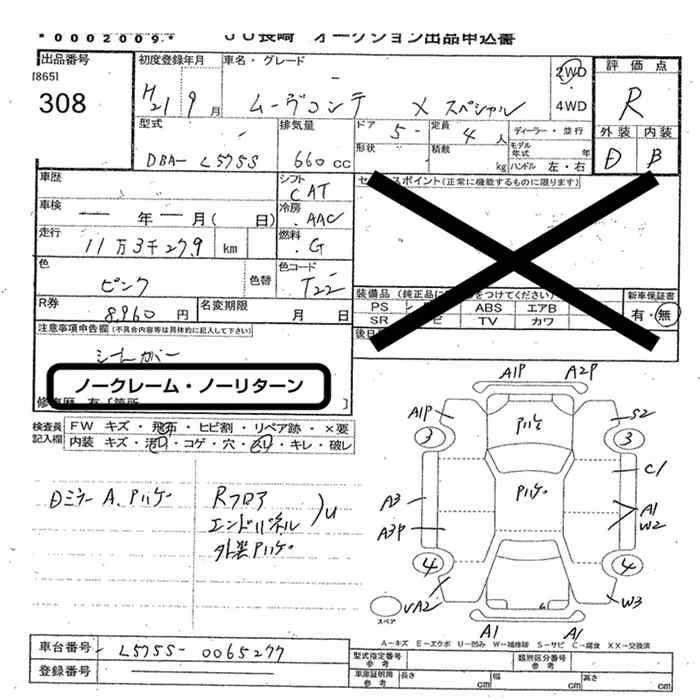 *0002009.*
JU長崎 オークション出品申込書
出品番号 初度登録年月 車名・グレード 2WD 評価点
[865]
308 H21 9月 ムーヴコンテ X スペシャル 4WD R
型式 排気量 ドア 5 定員 4人 ディーラー・並行 外装 内装
DBA-L575S 660cc 形状 積載 kg モデル年式 年 D B
ハンドル 左・右
車歴 シフト セールスポイント(正常に機能するものに限ります)
CAT
車検 年 月(日) 冷房 AAC
走行 11万3千279km 燃料 G
色 ピンク 色替 色コード T22
装備品(純正品に 印をつけてください) 新車保証書
PS ABS エアB 有・無
SR TV カワ
R券 8,960円 名変期限 月 日
後日
注意事項申告欄(不具合内容等は具体的に記入して下さい)
シートカバー
ノークレーム・ノーリターン
修復歴 有〔箇所 〕
検査員記入欄 FW キズ・飛石・ヒビ割・リペア跡・×要
内装 キズ・汚れ・コゲ・穴・スリ・キレ・破レ
Dミラー A、Pハゲ
Rフロア
エンドパネル U
外装Pハゲ
A1P A2P
A1P Pハゲ S2
3 3
C1
A3 Pハゲ A1
W2
A3P
4 4
UA2 W3
スペア
A1 A1
A-キズ E-エクボ U-凹み W-補修跡 S-サビ C-腐食 XX-交換済
車台番号 L575S-0065277
型式指定番号 参考 類別区分番号 参考
登録番号
車庫証明用 参考 長さ cm 幅 cm 高さ cm